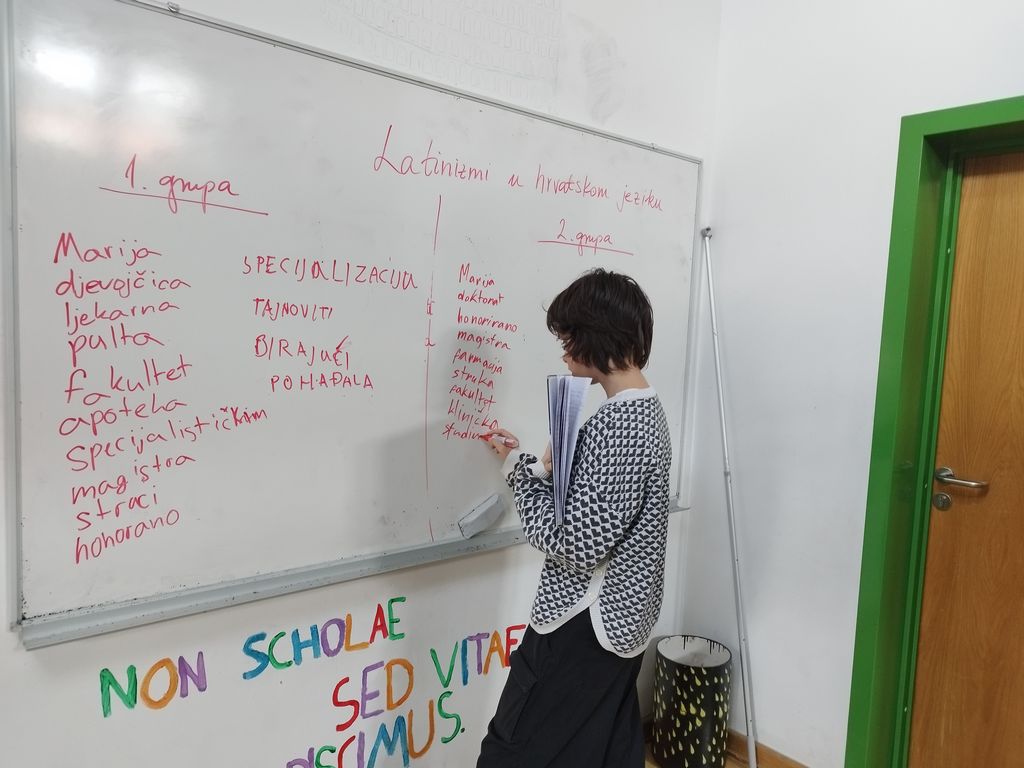 Latinizmi u hrvatskom jeziku
1. grupa
Marija
djevojčica
ljekarna
pulta
fakultet
apoteka
specijalističkim
magistra
straci
honorano
SPECIJALIZACIJA
TAJNOVITI
BIRAJUĆI
POHAĐALA
2. grupa
Marija
doktorat
honorirano
magistra
farmacija
struka
fakultet
NON SCHOLAE
SED VITAE
DISCIMUS.